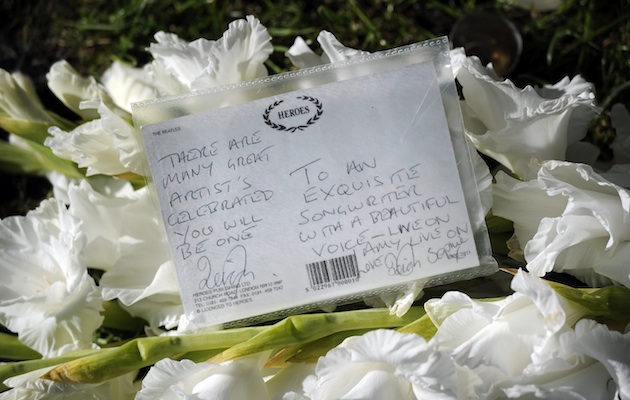 THE BEATLES
HEROES
THERE ARE
MANY GREAT
ARTIST'S
CELEBRATED
YOU WILL
BE ONE
TO AN
EXQUISITE
SONGWRITER
WITH A BEAUTIFUL
VOICE - LIVE ON
AMY LIVE ON
LOVE
HEROES PUBLISHING LTD
CHURCH ROAD LONDON